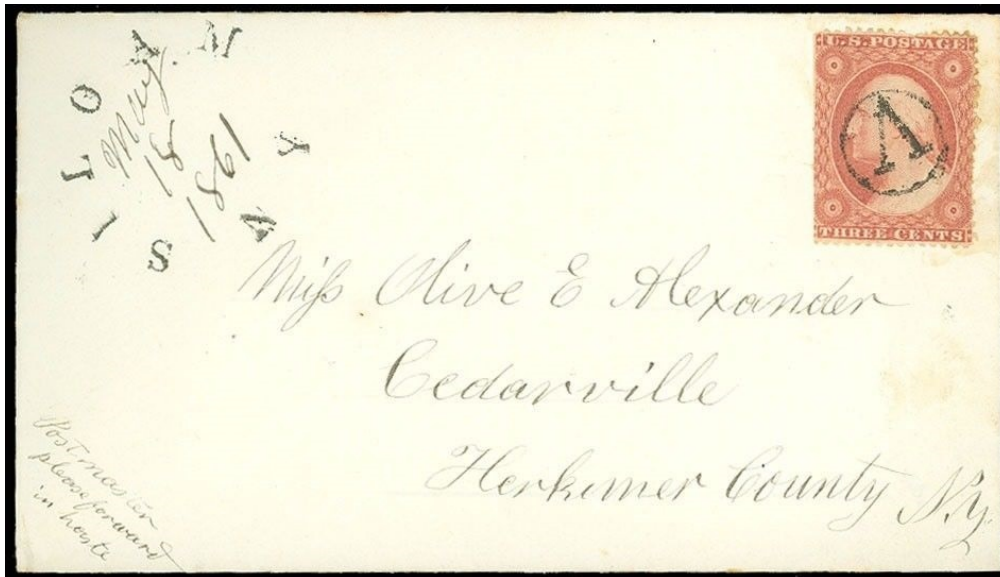 SILOAM
May
18
1861
N Y
U.S. POSTAGE
V
THREE CENTS
Miss Olive E Alexander
Cedarville
Herkimer County N.Y.
Post master
please forward
in haste